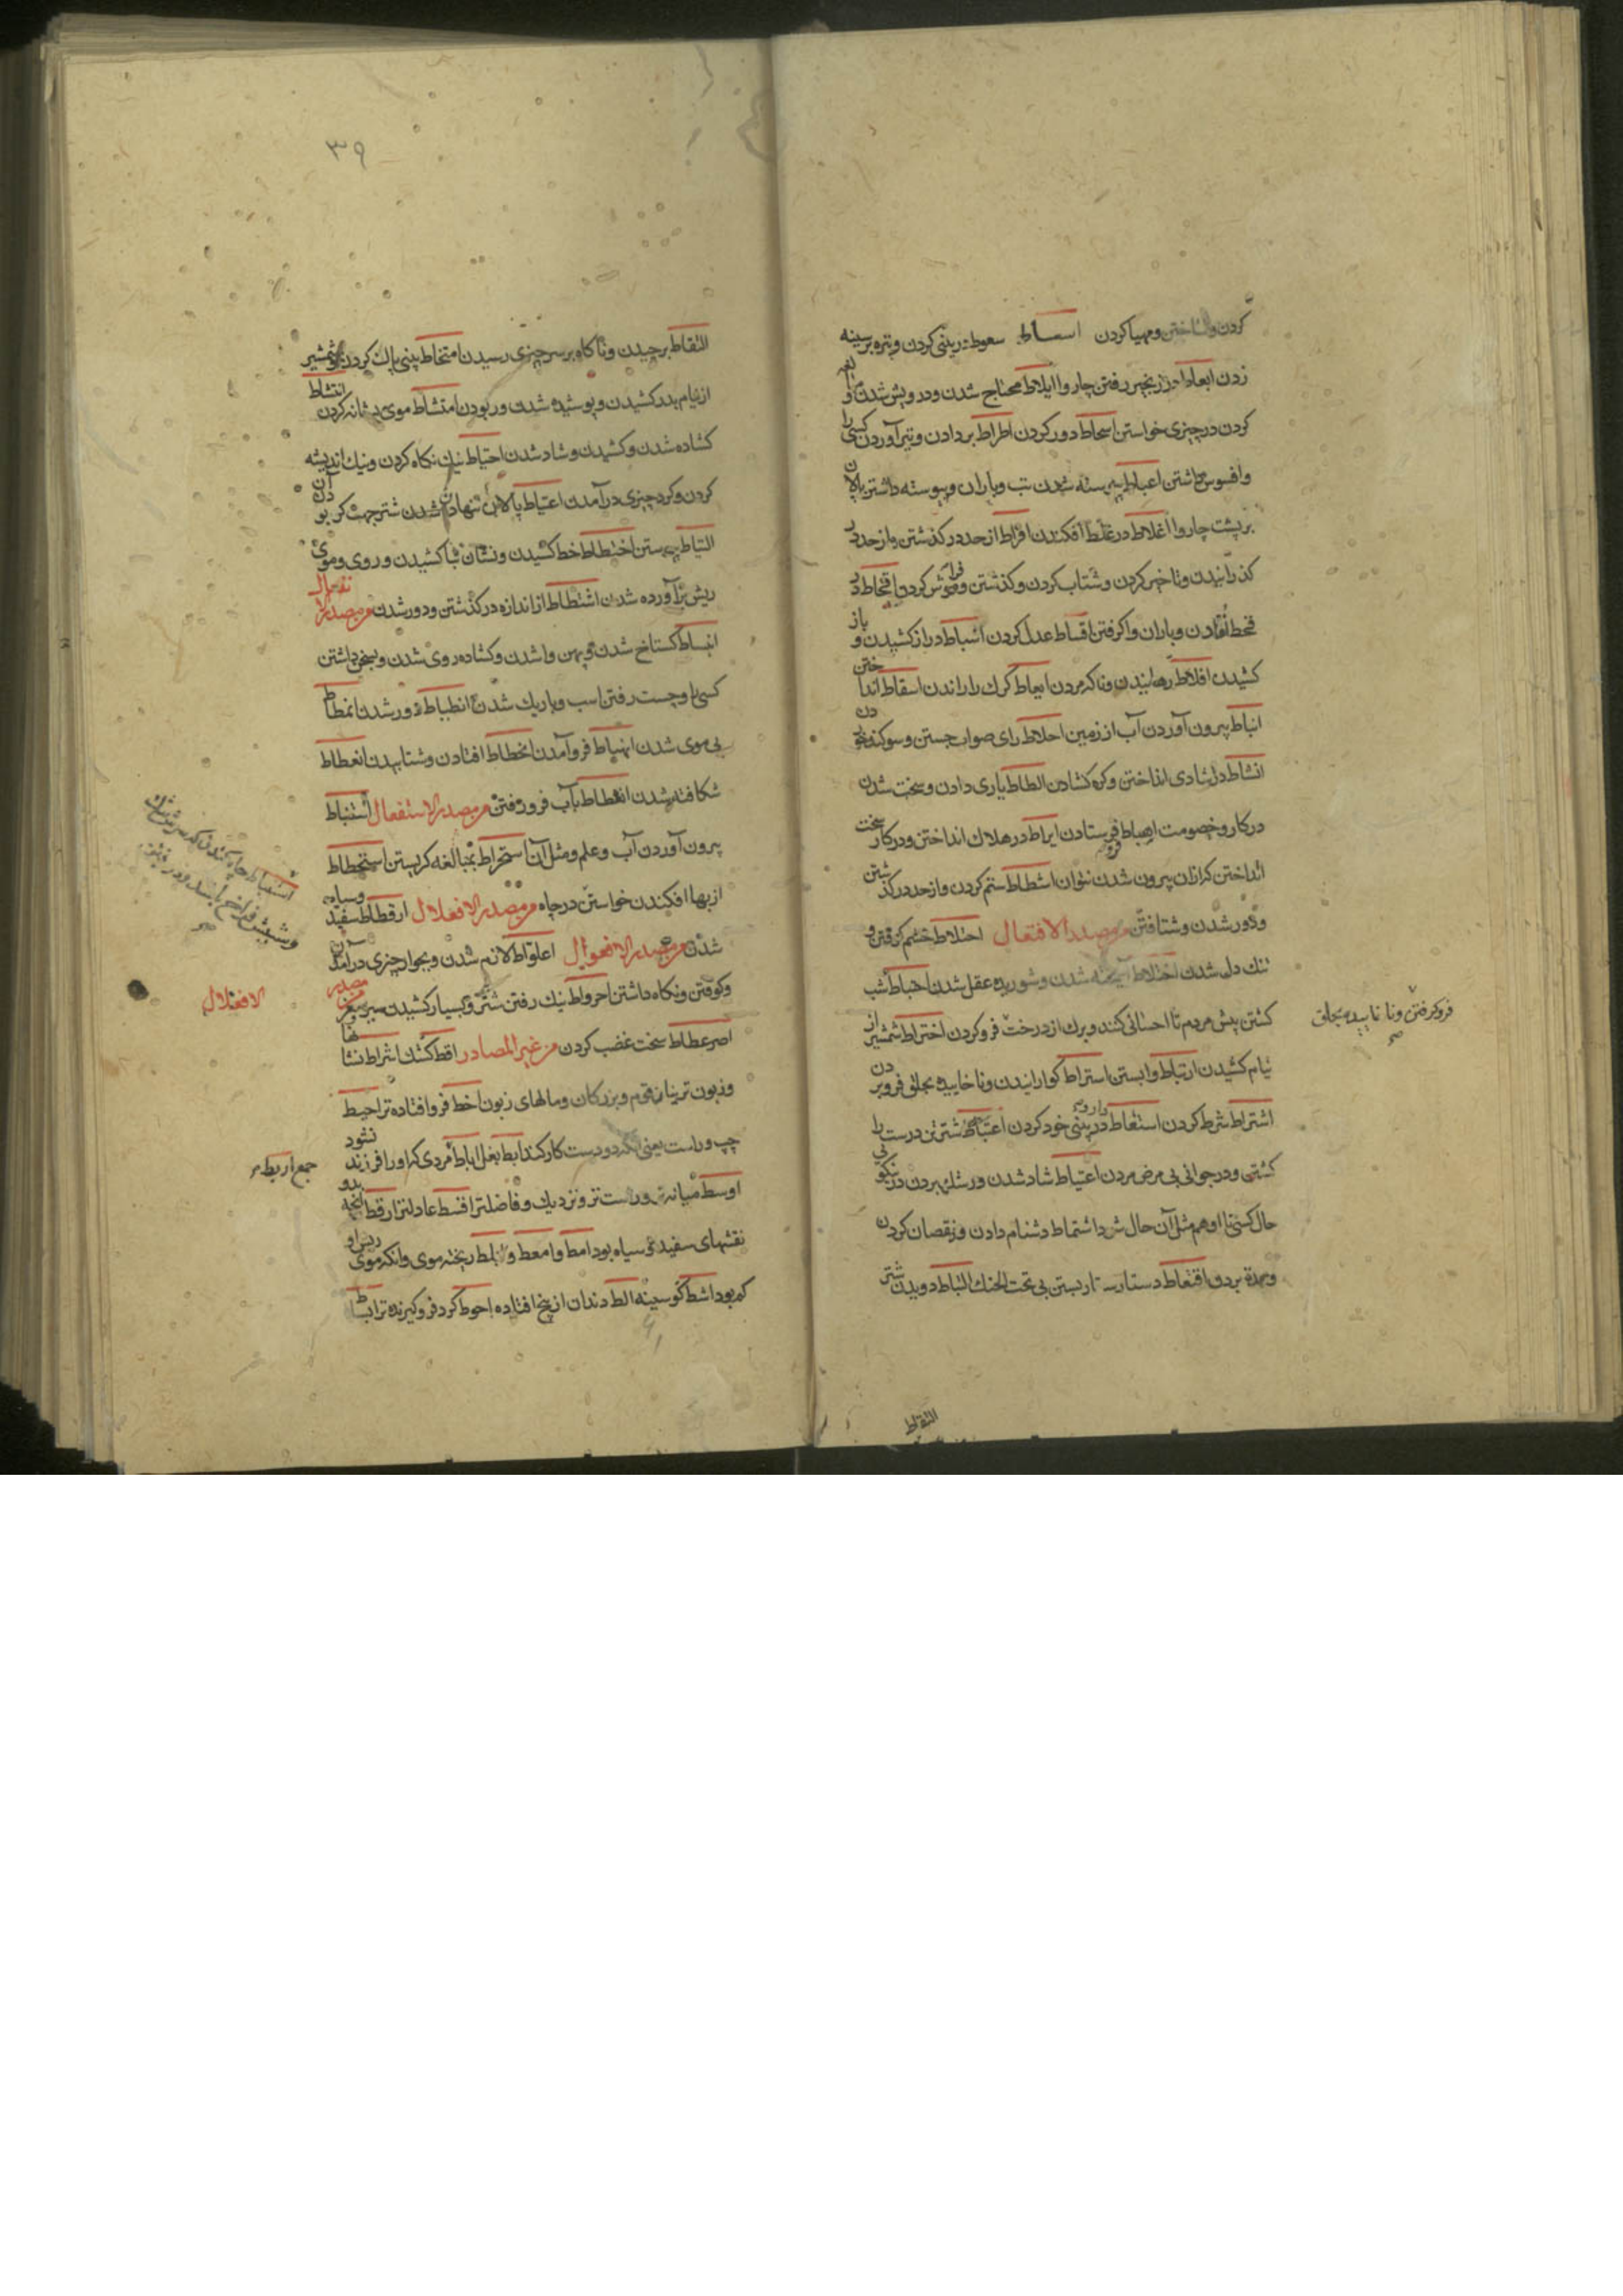 کردن و انداختن و مهیا کردن اسعاط سعوط در بینی کردن و نیزه بر سینه
زدن ابعاط در زنجیر رفتن چاروا ایلاط محتاج شدن و درویش شدن و
کردن در چیزی خواستن اسحاط دور کردن اطراط بر دادن و تیر آوردن کسی را
و افسوس داشتن اغباط پیوسته شدن تب و باران و پیوسته داشتن پالان
بر پشت چاروا اغلاط در غلط افکندن افراط از حد در گذشتن و از حد در
گذرانیدن و تاخیر کردن و شتاب کردن و گذشتن و فراموش کردن اقحاط در
قحط افتادن و باران واگرفتن اقساط عدل کردن اشباط دراز کشیدن و باز
کشیدن افلاط رهانیدن و ناگه مردن ابعاط گرک را راندن اسقاط انداختن
انباط بیرون آوردن آب از زمین احلاط رای صواب جستن و سوگند خوردن
انشاط دل شادی انداختن و گره گشادن الطاط یاری دادن و سخت شدن
در کار و خصومت اهباط فرو فرستادن ایراط در هلاک انداختن و در کار سخت
انداختن کز ازان بیرون شدن نتوان اشطاط ستم کردن و از حد در گذشتن
و دور شدن و شتافتن من مصدر الافتعال احتلاط خشم گرفتن و
تنک دل شدن اختلاط آمیخته شدن و شوریده عقل شدن احباط شب
کشتن پیش مردم تا احسانی کند و برک از درخت فرو کردن اختراط شمشیر از
نیام کشیدن ارتباط وا بستن استراط گوارانیدن و ناخاییده بحلق فرو بردن
اشتراط شرط کردن استعاط دارو در بینی خود کردن اعتباط شتر تن درست را
کشتن و در جوانی بی مرض مردن اغتباط شاد شدن و رشک بردن در نیکویی
حال کسی تا او هم مثل آن حال شود اشتماط دشنام دادن و نقصان کردن
و همه بردن اقتعاط دستار بستن بی تحت الحنک التباط دویدن شتر
فرو گرفتن و ناخاییده بحلق
صح
التقاط
۳۹
التقاط برچیدن و ناگاه بر سر چیزی رسیدن امتخاط بینی پاک کردن و شمشیر
از نیام بدر کشیدن و پوشیده شدن و ربودن امتشاط موی بشانه کردن انتشاط
گشاده شدن و کشیدن و شاد شدن احتیاط نیک نگاه کردن و نیک اندیشه
کردن و کرد چیزی در آمدن اعتیاط
التیاط پیوستن اختطاط خط کشیدن و نشان کشیدن و روی و موی
ریش برآورده شدن اشتطاط از اندازه در گذشتن و دور شدن من مصدر الانفعال
انبساط گستاخ شدن و پهن وا شدن و گشاده روی شدن و
کسی را و چست رفتن اسب و باریک شدن انطباط دور شدن انمطاط
بی موی شدن انهباط فرو آمدن انحطاط افتادن و شتابیدن انعطاط
شکافته شدن انغطاط بآب فرو رفتن من مصدر الاستفعال استنباط
بیرون آوردن آب و علم و مثل آن استخراط بمبالغه گریستن استحطاط
از بها افکندن خواستن در جاه من مصدر الافعلال ارقطاط سفید و سیاه
شدن من مصدر الافعوال اعلواط لازم شدن و بجوار چیزی در آمدن
و کوفتن و نگاه داشتن احرواط نیک رفتن شتر و بسیار کشیدن من مصدر
الافعنلال
اصرعطاط سخت غضب کردن من غیر المصادر اقط کشک اشراط نشانها
و زبون ترینان قوم و بزرگان و مالهای زبون احط فرو افتاده تر احیط
چپ و راست یعنی آنکه دو دست کار کند ابط بغل اباط مردی که او را فرزند نشود
جمع اربط
اوسط میانه تر و راست تر و نزدیک و فاضلتر اقسط عادلتر ارقط آنچه بدو
نقشهای سفید و سیاه بود امط و امعط و املط ریخته موی و آنکه موی ریش او
کم بود اشط کوسینه الط دندان از بیخ افتاده احوط کرد فرو گیرنده تر